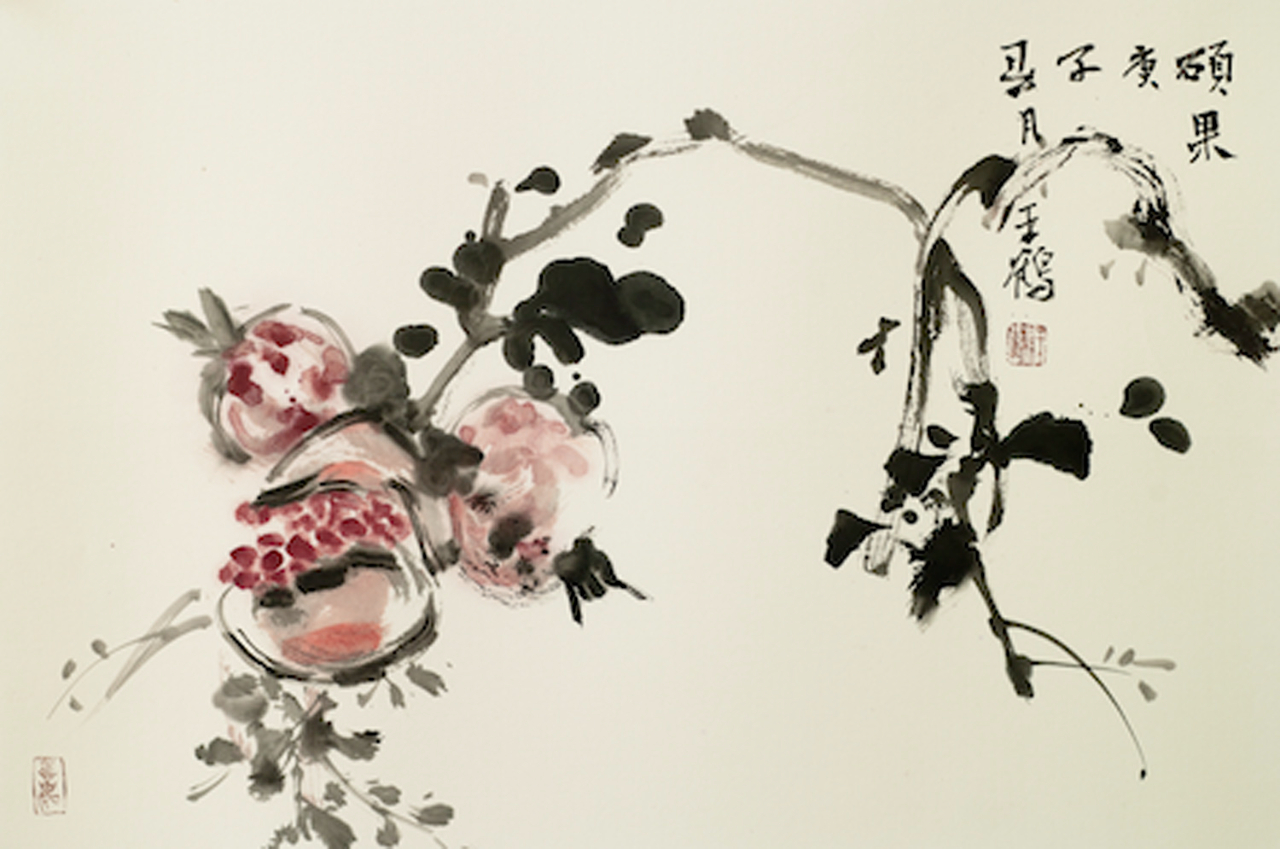 碩果
庚
子
月王鶴